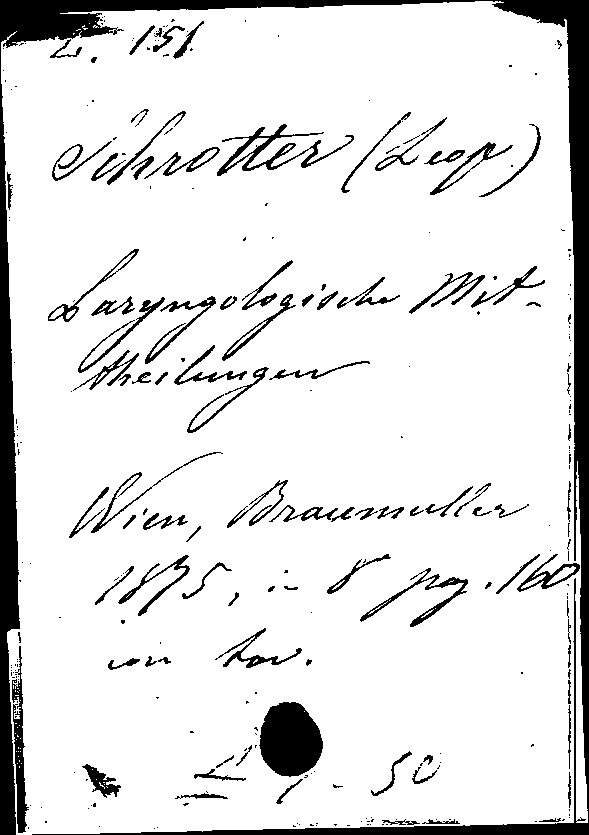 L. 151
Schrotter (Leop.)
Laryngologische Mit-
theilungen
Wien, Braumuller
1875, in 8° pag. 160
con tav.
- 50